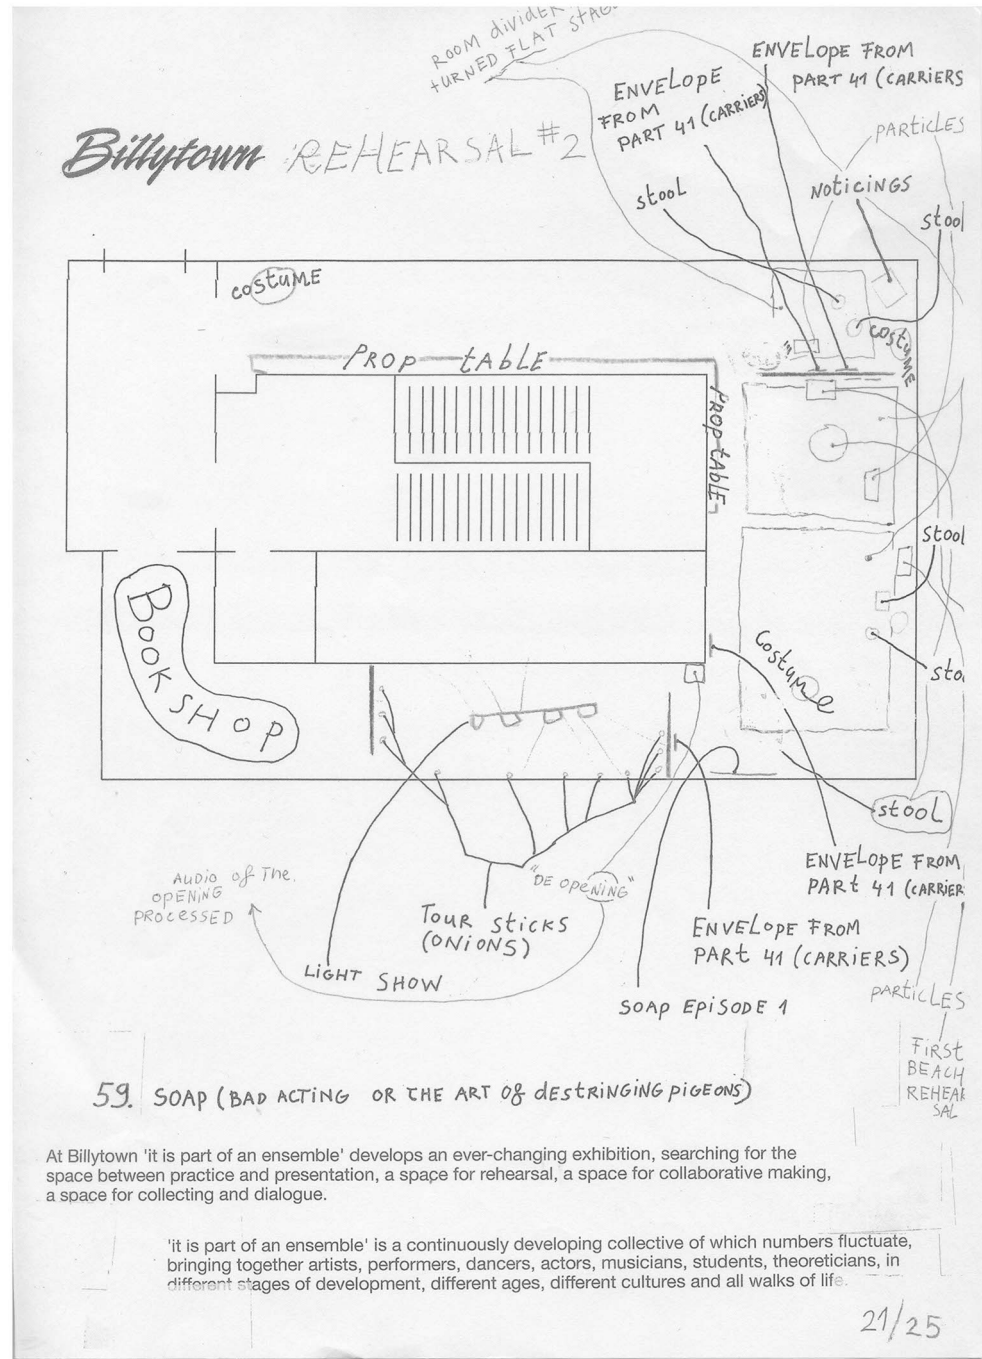 ROOM dividER
tURNED FLAT STAGE
ENVELOPE
FROM
PART 41 (CARRIERS)
ENVELOPE FROM
PART 41 (CARRIERS
PARtICLES
Billytown REHEARSAL #2
NOTICINGS
stooL
stool
costUME
costUME
PROP tABLE
PROP tABLE
stool
BOOKSHOP
Costume
sto
stool
ENVELOPE FROM
PARt 41 (CARRIER
AUDIO of The.
OPENiNG
PROCESSED
"DE OPENING"
TOUR STiCKS
(ONIONS)
ENVELOPE FROM
PARt 41 (CARRIERS)
LiGHT SHOW
SOAP EPISODE 1
PARTICLES
FiRST
BEACH
REHEAR
SAL
59. SOAP (BAD ACTING OR THE ART Of dEStRINGING PIGEONS)
At Billytown 'it is part of an ensemble' develops an ever-changing exhibition, searching for the
space between practice and presentation, a space for rehearsal, a space for collaborative making,
a space for collecting and dialogue.
'it is part of an ensemble' is a continuously developing collective of which numbers fluctuate,
bringing together artists, performers, dancers, actors, musicians, students, theoreticians, in
different stages of development, different ages, different cultures and all walks of life.
21/25